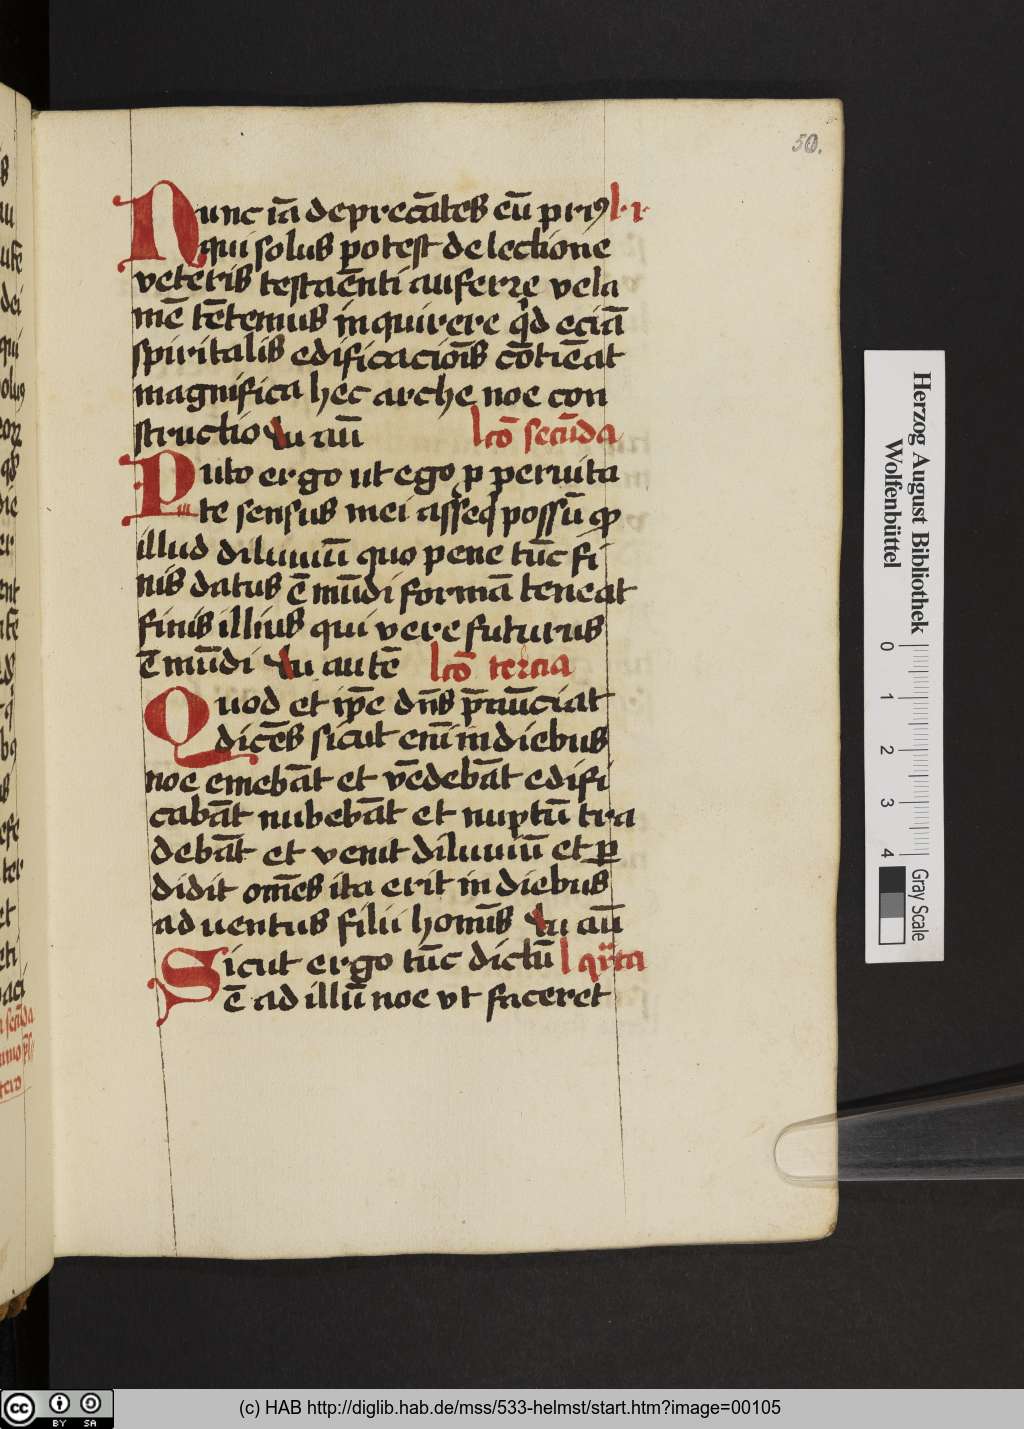 50.
Nunc iā deprecātes eū priꝯ l· ı·
qui solus potest de lectione
veteris testaēnti auferre vela
mē tētemus inquirere qͥd eciā
spiritalis edificaciōis cōtīeat
magnifica hec arche noe con
structio tu aū lcō secūda
Puto ergo ut ego p̱ paruita
te sensus mei asseqͥ possū qꝫ
illud diluuiū quo pene tūc fi
nis datus ē mūdi formā teneat
finis illius qui vere futurus
ē mūdi tu autē lcō tercia
Quod et ip̄e dn̄s p̄nūciat
dicēs sicut enī in diebus
noe emebāt et vēdebāt edifi
cabāt nubebāt et nuptū tra
debāt et venit diluuiū et ꝑ
didit om̄es ita erit in diebus
aduentus filii homīs tu aū
Sicut ergo tūc dictū l qͣrta
ē ad illū noe vt faceret
Herzog August Bibliothek
Wolfenbüttel
0 1 2 3 4
Gray Scale
cc BY SA
(c) HAB http://diglib.hab.de/mss/533-helmst/start.htm?image=00105